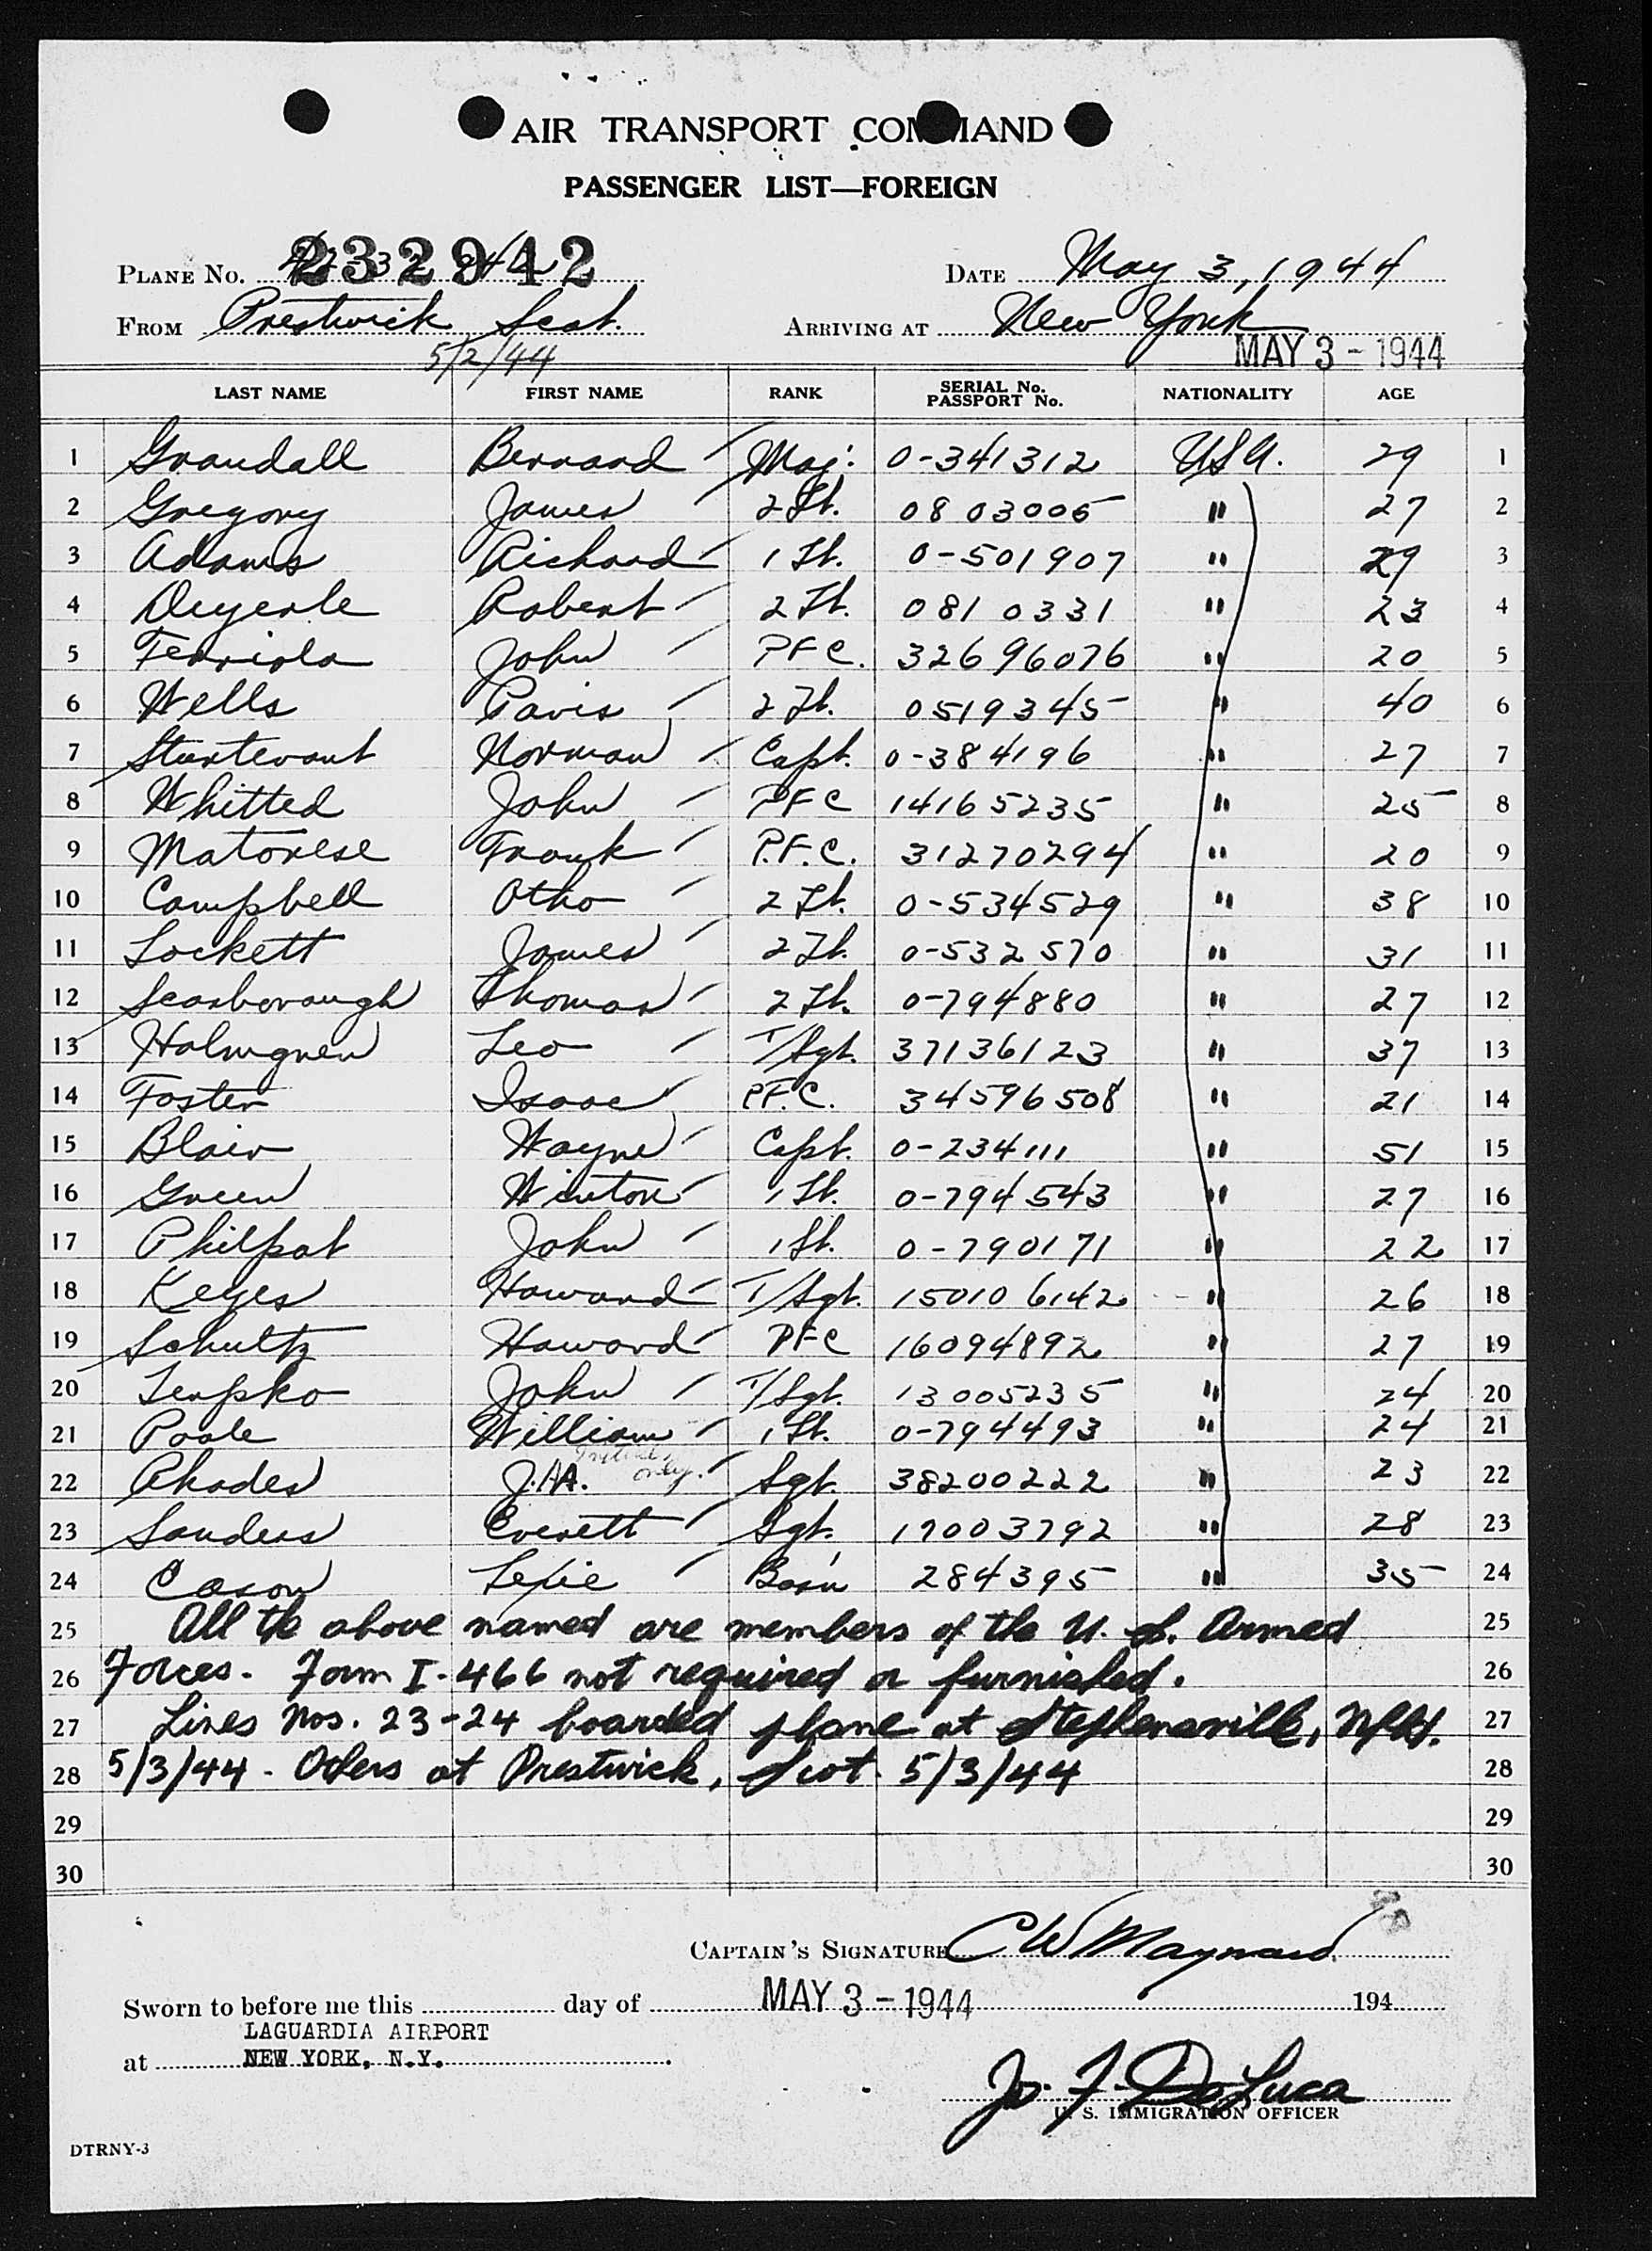 AIR TRANSPORT COMMAND
PASSENGER LIST—FOREIGN
PLANE No. 232942 DATE May 3, 1944
FROM Prestwick Scot. ARRIVING AT New York
5/2/44 MAY 3 - 1944
LAST NAME FIRST NAME RANK SERIAL No. PASSPORT No. NATIONALITY AGE
1 Grandall Bernard Maj. 0-341312 USA. 29 1
2 Gregory James 2 Lt. 0803005 " 27 2
3 Adams Richard 1 Lt. 0-501907 " 29 3
4 Deyerle Robert 2 Lt. 0810331 " 23 4
5 Ferriola John PFC. 32696076 " 20 5
6 Wells Pavis 2 Lt. 0519345 " 40 6
7 Sturtevant Norman Capt. 0-384196 " 27 7
8 Whitted John PFC 14165235 " 25 8
9 Matorese Frank P.F.C. 31270294 " 20 9
10 Campbell Otho 2 Lt. 0-534529 " 38 10
11 Lockett James 2 Lt. 0-532570 " 31 11
12 Scarborough Thomas 2 Lt. 0-794880 " 27 12
13 Holmgren Leo T/Sgt. 37136123 " 37 13
14 Foster Isaac PF.C. 34596508 " 21 14
15 Blair Wayne Capt. 0-234111 " 51 15
16 Green Winton 1 Lt. 0-794543 " 27 16
17 Philpot John 1 Lt. 0-790171 " 22 17
18 Keyes Howard T/Sgt. 150106142 " 26 18
19 Schultz Howard PFC 16094892 " 27 19
20 John T/Sgt. 13005235 " 24 20
21 Poole William 1 Lt. 0-794493 " 24 21
22 Rhodes J.A. Initials only. Sgt. 38200222 " 23 22
23 Sanders Everett Sgt. 17003792 " 28 23
24 Cason Lexie Bos'n 284395 " 35 24
25 All the above named are members of the U. S. Armed 25
26 Forces. Form I-466 not required or furnished. 26
27 Lines Nos. 23-24 boarded plane at Stephensville, Nfld. 27
28 5/3/44 - Others at Prestwick, Scot. 5/3/44 28
29 29
30 30
CAPTAIN'S SIGNATURE C W Maynard
Sworn to before me this day of MAY 3 - 1944 194
LAGUARDIA AIRPORT
at NEW YORK, N.Y.
Jo. F. DeLuca
U. S. IMMIGRATION OFFICER
DTRNY-3